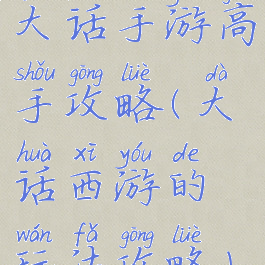 大话手游高
shǒu gōng lüè dà
手攻略(大
huà xī yóu de
话西游的
wán fǎ gōng lüè
玩法攻略)